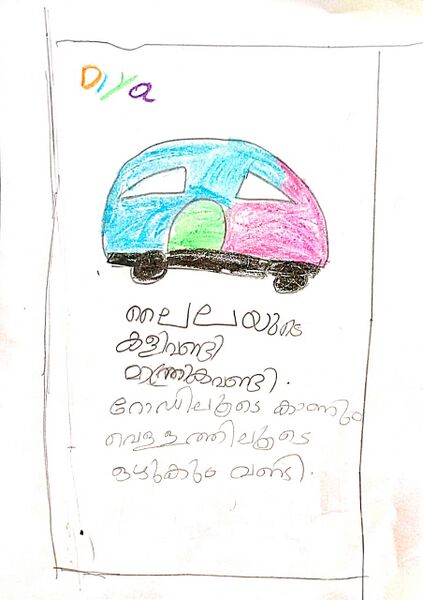 Diya
ലൈലയുടെ
കളിവണ്ടി
മാന്ത്രികവണ്ടി.
റോഡിലൂടെ കാണും
വെള്ളത്തിലൂടെ
ഒഴുകും വണ്ടി.